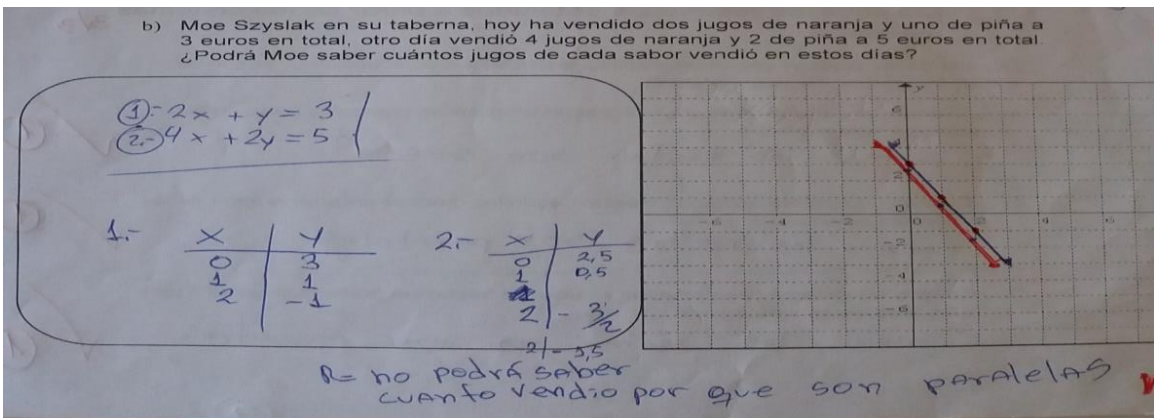 b) Moe Szyslak en su taberna, hoy ha vendido dos jugos de naranja y uno de piña a
3 euros en total, otro día vendió 4 jugos de naranja y 2 de piña a 5 euros en total.
¿Podrá Moe saber cuántos jugos de cada sabor vendió en estos días?
1.- 2x + y = 3
2.- 4x + 2y = 5
1.- x y
0 3
1 1
2 -1
2.- x y
0 2,5
1 0,5
2 - 3/2
y
6
2
0
-6 -4 -2 0 2 4 6
-2
-4
-6
R= no podrá saber
cuanto vendio por que son paralelas